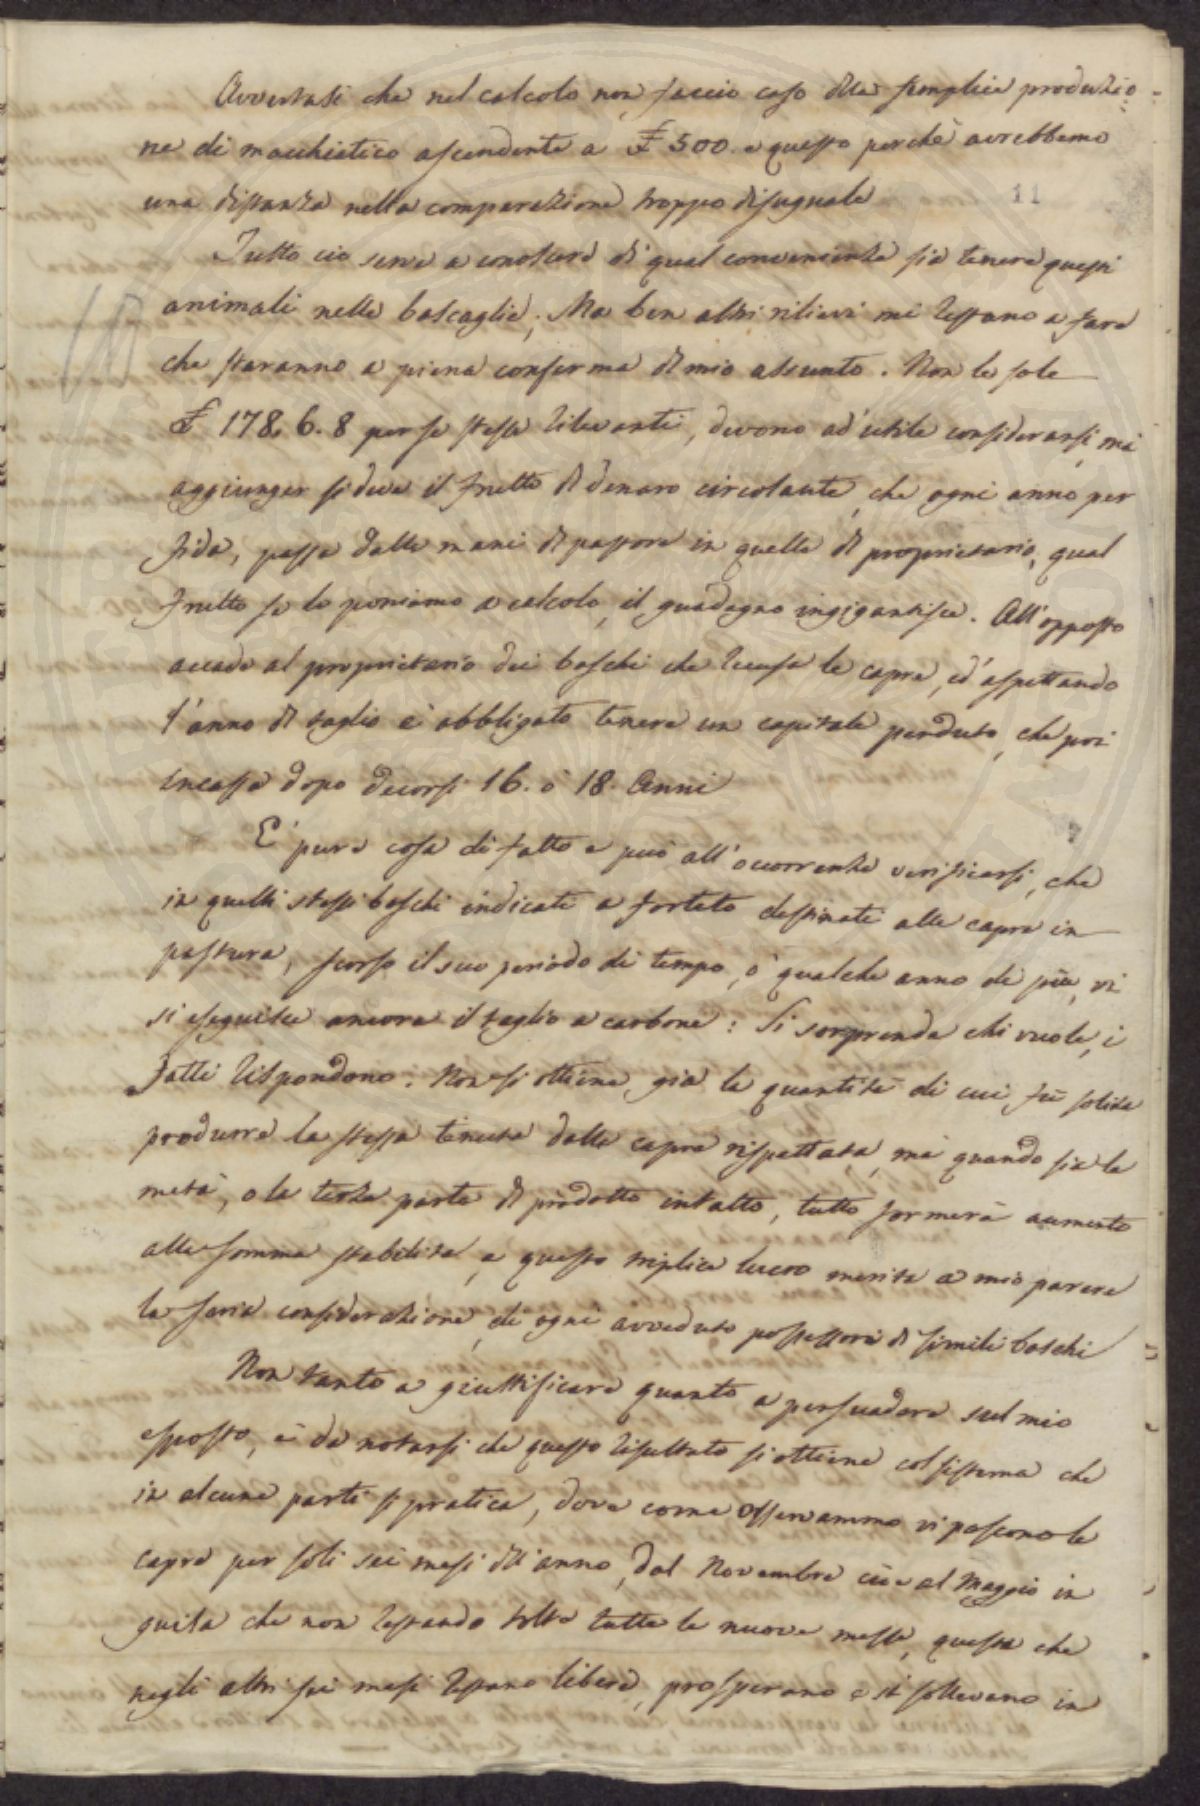 Avvertasi che nel calcolo non faccio caso della semplice produzio-
ne di macchiatico ascendente a £ 500. e questo perchè avrebbemo
una distanza nella comparazione troppo disuguale
11
Tutto ciò serve a conoscere di qual convenienza sia tenere questi
animali nelle boscaglie; Ma ben altri rilievi mi restano a fare
che staranno a piena conferma del mio assunto. Non le sole
£ 178. 6. 8 per se stesse rilevanti, devono ad utile considerarsi, mà
aggiunger si deve il frutto del denaro circolante, che ogni anno per
fida, passa dalle mani del pastore in quelle del proprietario, qual
frutto se lo poniamo a calcolo, il guadagno ingigantisce. All'opposto
accade al proprietario dei boschi che recusa le capre, ed aspettando
l'anno del taglio è obbligato tenere un capitale perduto, che poi
incassa dopo decorsi 16. o 18. Anni
E' pure cosa di fatto e può all'occorrenza verificarsi, che
in quelli stessi boschi indicati a forteto destinati alle capre in
pastura, scorso il suo periodo di tempo, o qualche anno di più, vi
si eseguisce ancora il taglio a carbone: Si sorprenda chi vuole, i
fatti rispondono. Non si ottiene già la quantità di cui fù solita
produrre la stessa tenuta dalle capre rispettata, mà quando sia la
metà, o la terza parte del prodotto intatto, tutto formerà aumento
alla somma stabilita, e questo triplice lucro merita a mio parere
la seria considerazione, di ogni avveduto possessore di simili boschi
Non tanto a giustificare quanto a persuadere sul mio
esposto, è da notarsi che questo risultato si ottiene col sistema che
in alcune parti si pratica, dove come osservammo vi pascono le
capre per soli sei mesi dell'anno, dal Novembre cioè al Maggio in
guisa che non restando tolte tutte le nuove messe, queste che
negli altri sei mesi restano libere, prosperano e si sollevano in